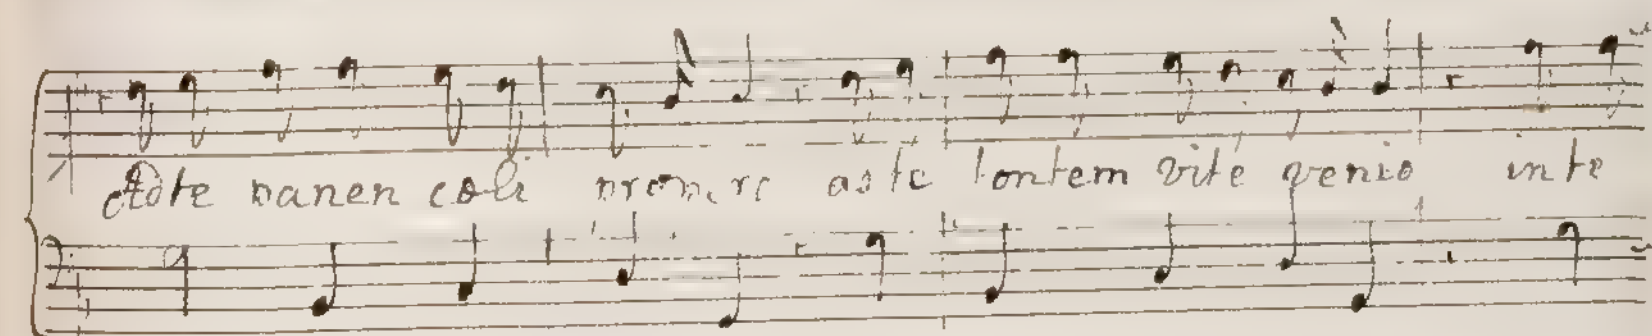 Adte panem coli propero adte fontem vité venio inte